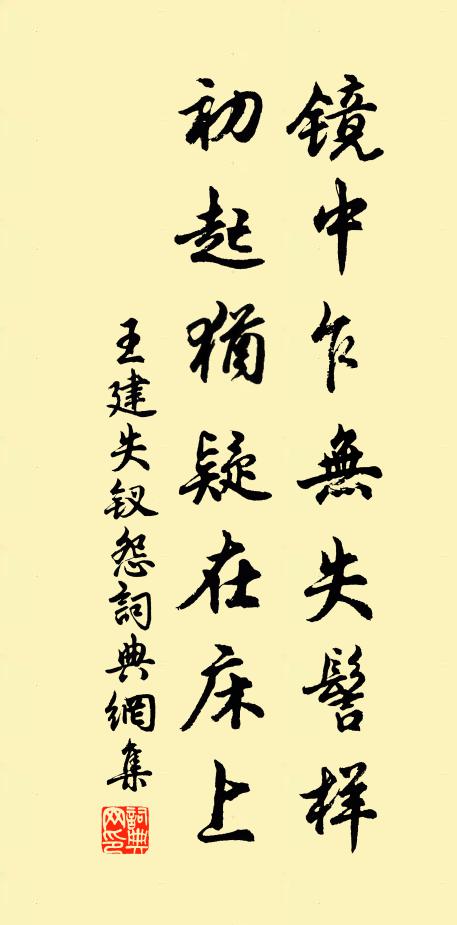 镜中乍無失髻样
初起猶疑在床上
王建失钗怨詞典網集
詞典網印